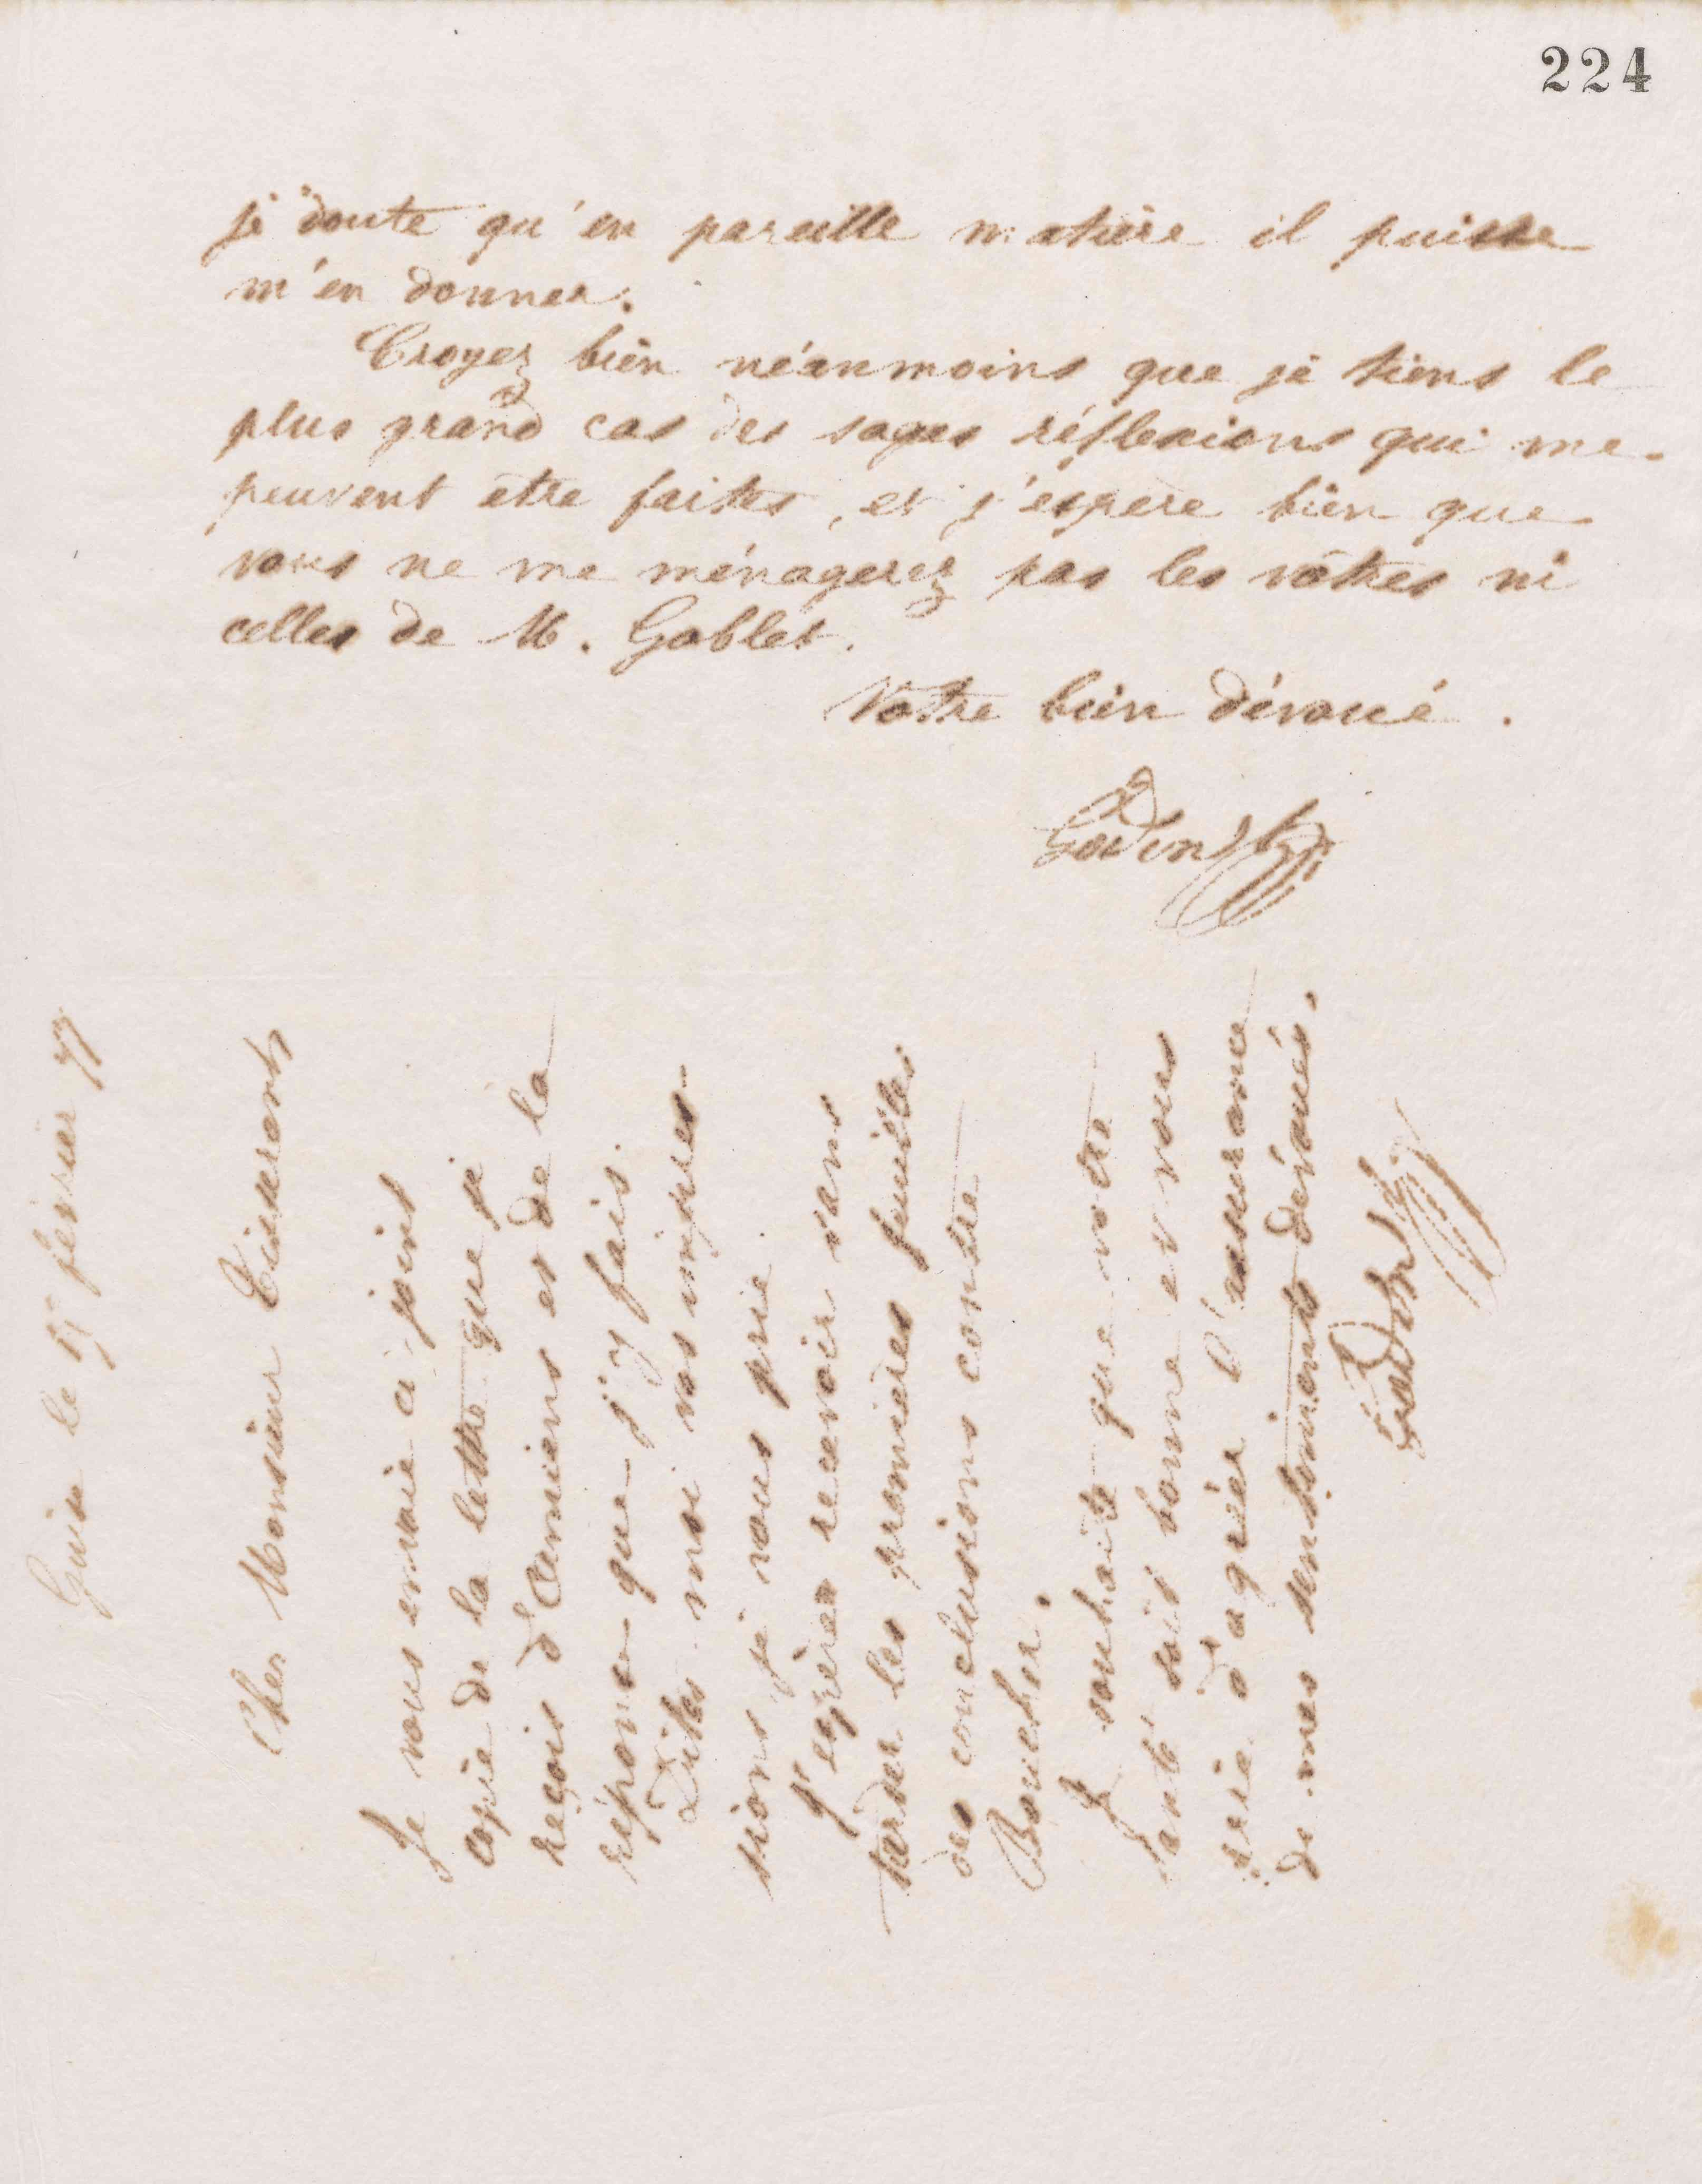 224
je doute qu'en pareille matière il puisse
m'en donner.
Croyez bien néanmoins que je tiens le
plus grand cas des sages réflexions qui me
peuvent être faites, et j'espère bien que
vous ne me ménagerez pas les vôtres ni
celles de M. Goblet.
Votre bien dévoué.
Godin
Guise le février 77
Cher Monsieur Tisserant
Je vous envoie ci-joint
copie de la lettre que je
reçois d'Amiens et de la
réponse que j'y fais.
Dites-moi vos impres-
sions je vous prie.
J'espère recevoir sans
tarder les premières feuilles
des conclusions contre
Boucher.
Je souhaite que votre
santé soit bonne et vous
prie d'agréer l'assurance
de mes sentiments dévoués.
Godin